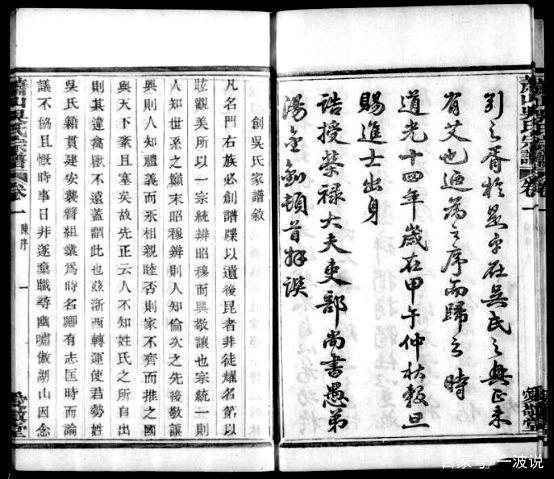 蕭山吳氏宗譜
卷一
引之胥於是乎在吳氏之興正未
有艾也遂為之序而歸之時
道光十四年歲在甲午仲秋穀旦
賜進士出身
誥授榮祿大夫吏部尚書愚弟
湯金釗頓首拜譔
創吳氏家譜敘
凡名門右族必創譜牒以遺後昆者非徒耀名第以
眩觀美所以一宗統辨昭穆而興敬讓也宗統一則
人知世系之顛末昭穆辨則人知倫次之先後敬讓
興則人知禮義而永相親睦否則家不齊而推之國
與天下且塞矣故先正云人不知姓氏之所自出
則其違禽獸不遠蓋謂此也茲浙西轉運使君勢姓
吳氏籍貫建安襲簪組業爲時名卿有志匡時而論
議不協且慨時事日非遂棄職尋幽嘯傲湖山因念
蕭山吳氏宗譜
卷一
陳序
一
愛敬堂
百家号/一波说